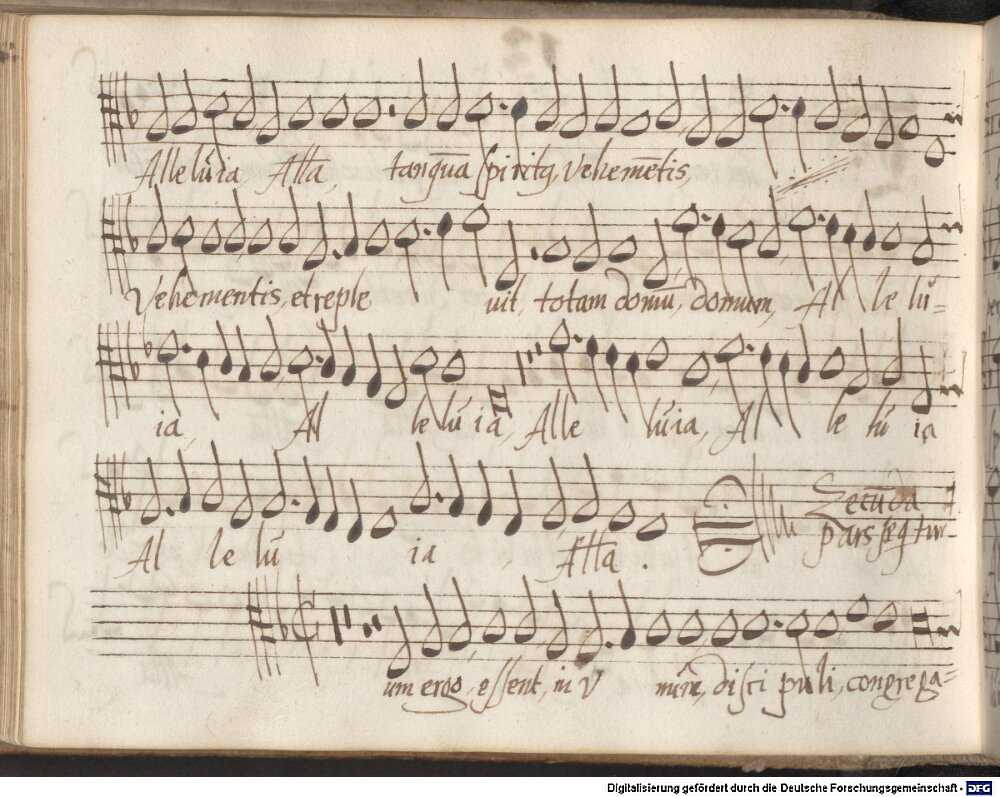 Alleluia, Alla, tanq̄ua spiritq, vehemētis,
Vehementis, et reple uit, totam domū, domum, Al le lu-
ia, Al le lu ia, Alle luia, Al le lu ia
Al le lu ia, Alla.
Secūda
pars seq̄tur
um ergo, essent, in v nūm, disci puli, congrega=
Digitalisierung gefördert durch die Deutsche Forschungsgemeinschaft - DFG